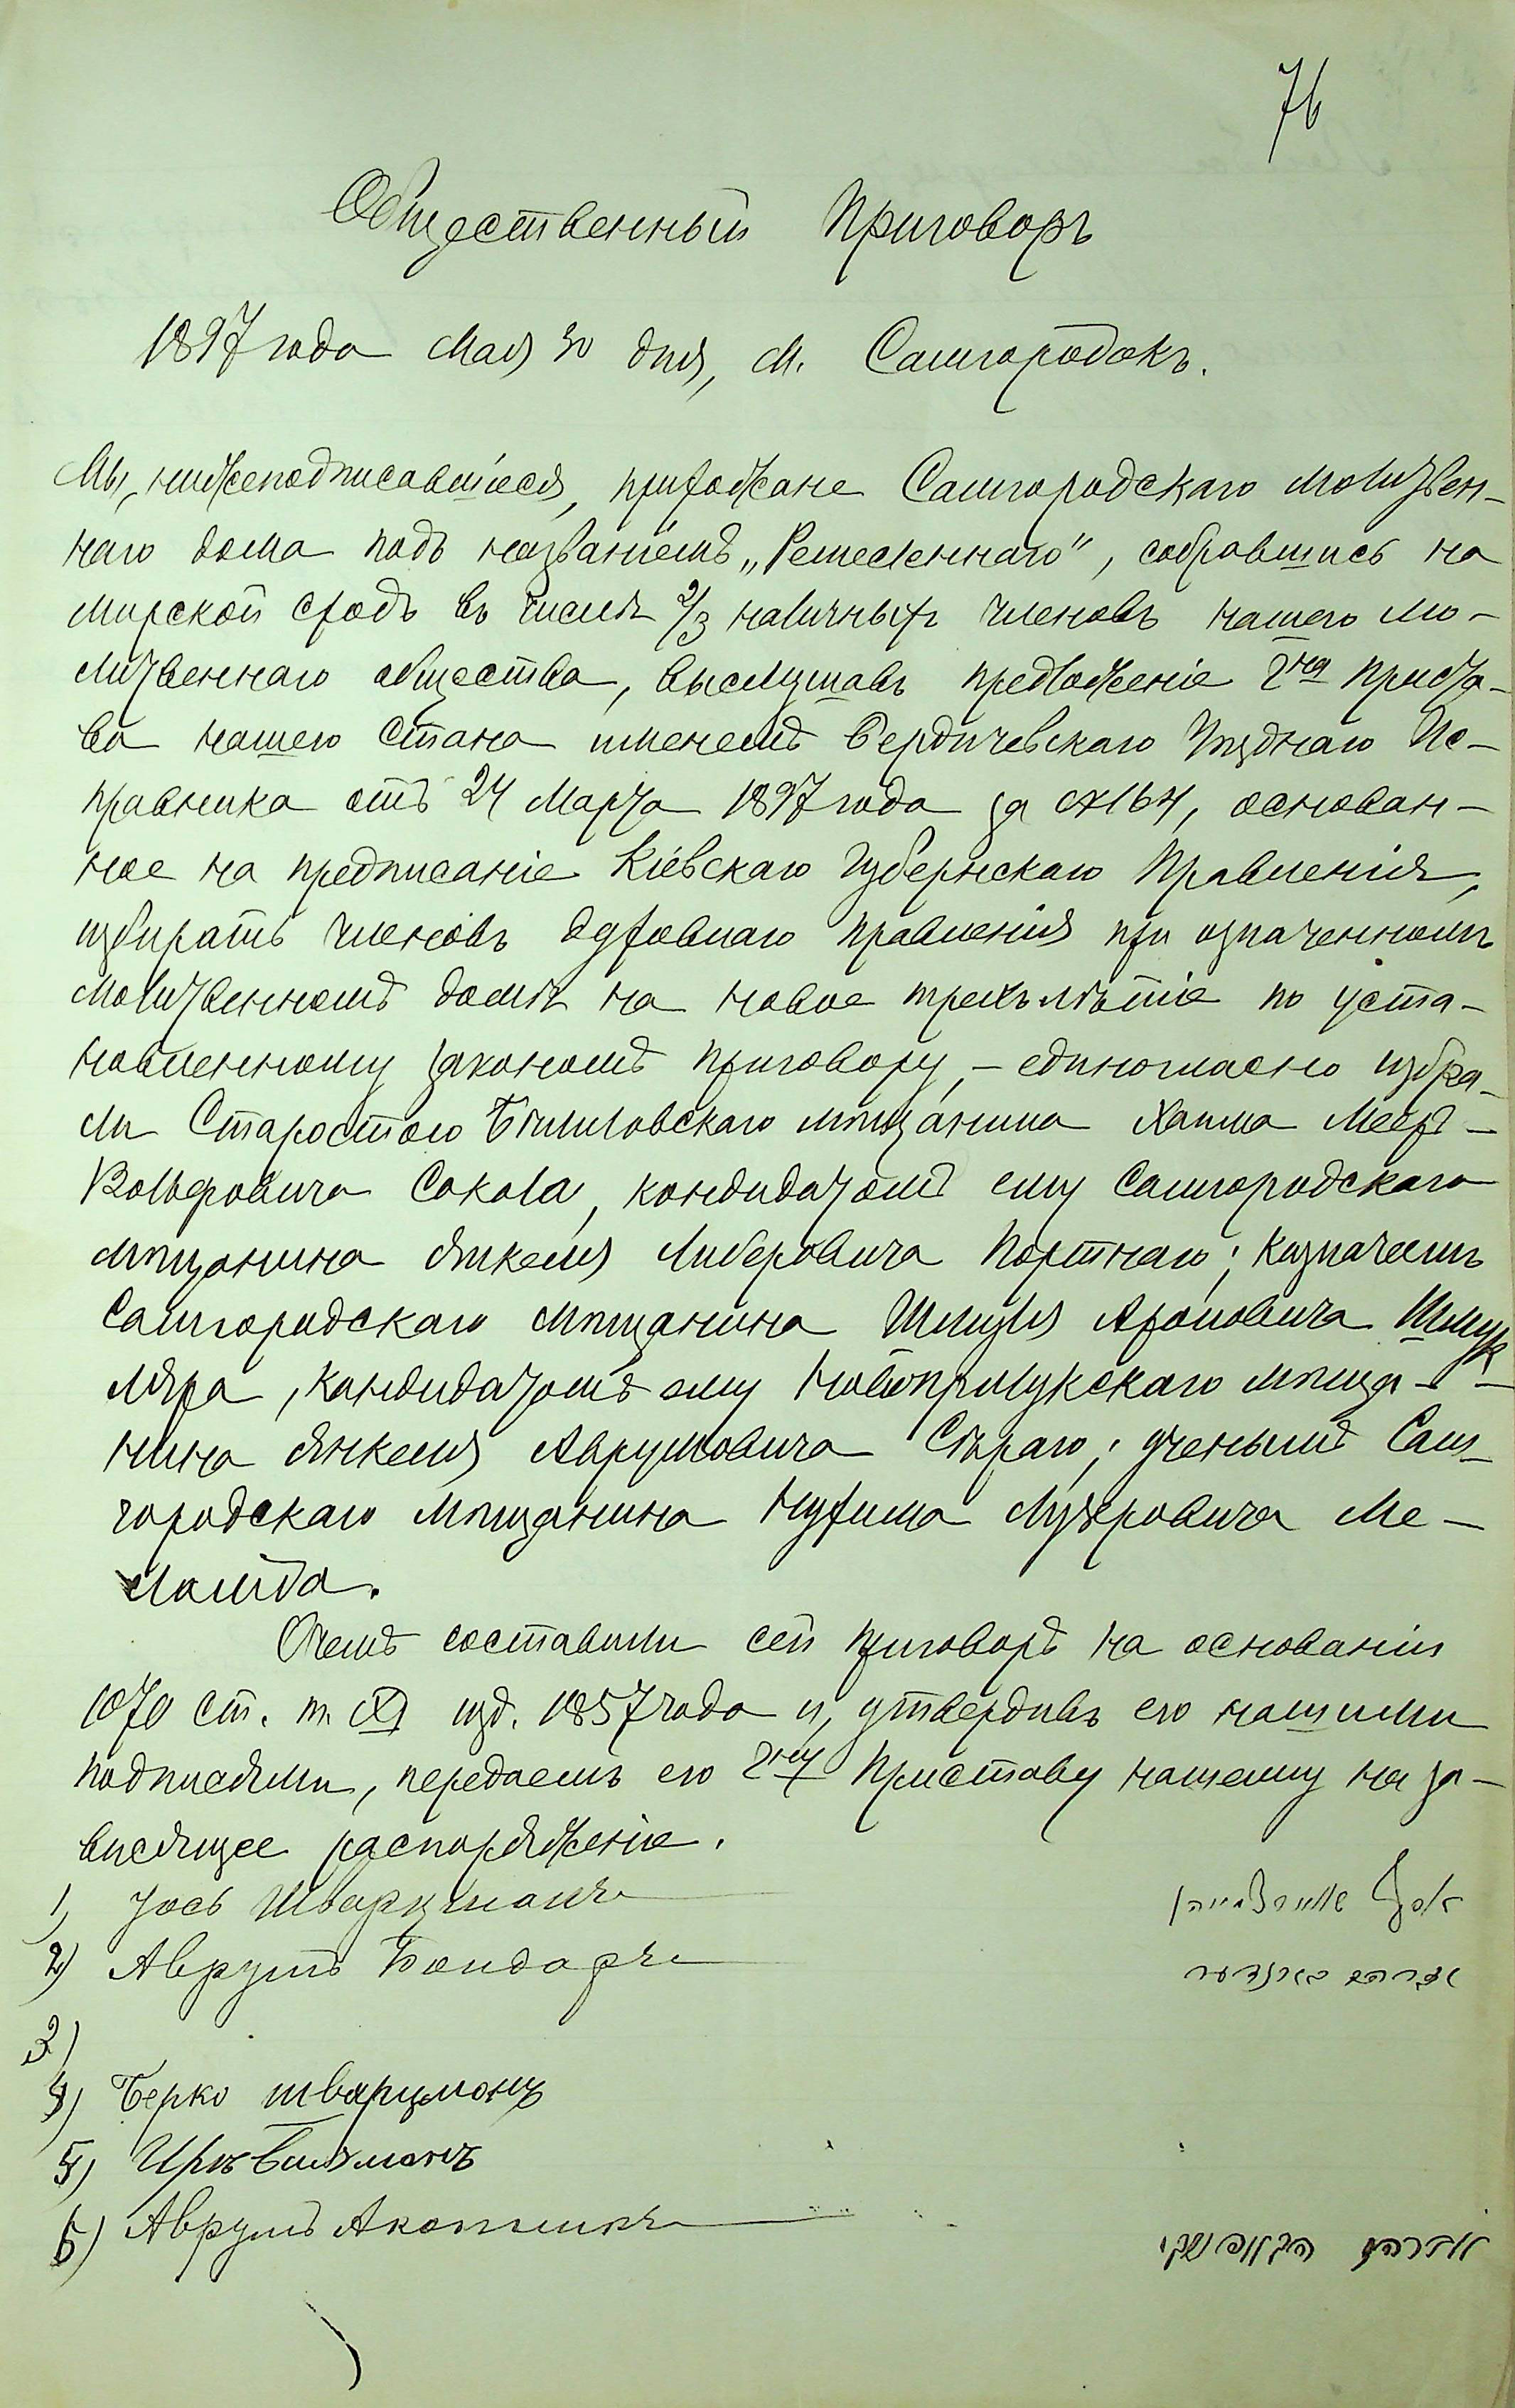 76
Общественный Приговоръ
1897 года Мая 30 дня, м. Самгородокъ.
Мы, нижеподписавшіеся, прихожане Самгородскаго молитвен-
наго дома подъ названіемъ „Ремесленнаго“, собравшись на
мирской сходъ въ числѣ 2/3 наличныхъ членовъ нашего мо-
литвеннаго общества, выслушавъ предложеніе 2го Приста-
ва нашего стана именемъ Бердичевскаго Уѣзднаго Ис-
правника отъ 24 Марта 1897 года за №164, основан-
ное на предписаніе Кіевскаго Губернскаго Правленія,
избирать членовъ духовнаго правленія при означенномъ
молитвенномъ домѣ на новое трехълѣтіе по уста-
новленному закономъ приговору, – единогласно избра-
ли Старостою Бѣлиловскаго мѣщанина Хаима Меер-
Вольфовича Сокола, кандидатомъ ему Самгородскаго
мѣщанина Янкеля Либеровича Портнаго; Казначеемъ
Самгородскаго мѣщанина Шмуля Ароновича Шмук
ляра, кандидатомъ ему Новоприлукскаго мѣща-
нина Янкеля Аврумовича Сѣраго; ученымъ Сам-
городскаго мѣщанина Нухима Лузеровича Ме-
ламеда.
О чемъ составили сей приговоръ на основаніи
1070 ст. т. XI изд. 1857 года и, утвердивъ его нашими
подписями, передаемъ его 2му Приставу нашему на за-
висящее распоряженіе.
1) Іось Шварцманъ
2) Аврумъ Бондаръ אברהם באנדער
3)
4) Берко шварцманъ
5)
6) Аврумъ